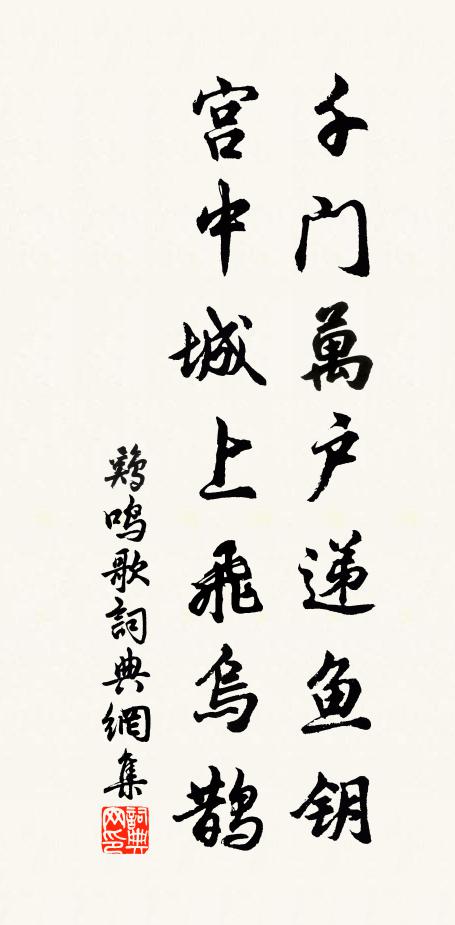 千门萬户递鱼钥
宫中城上飛烏鹊
鷄鳴歌詞典網集
詞典网印